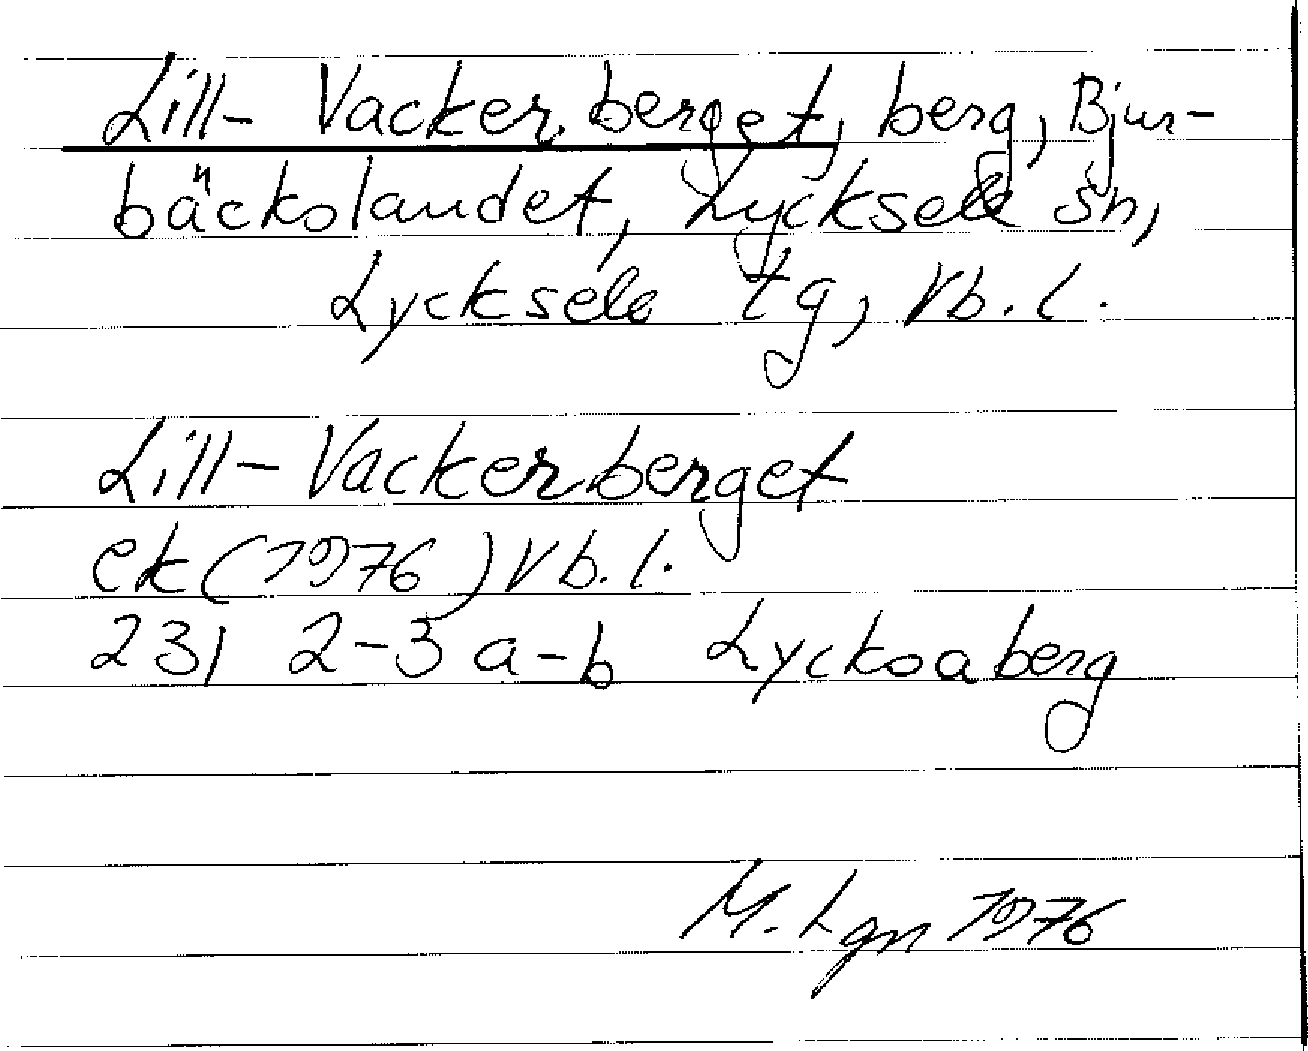 Lill-Vackerberget, berg, Bjur-
bäckslandet, Lycksele sn,
Lycksele tg, Vb. l.
Lill-Vackerberget
ek (1976) Vb. l.
23I 2-3 a-b Lycksaberg
M. Lgn 1976